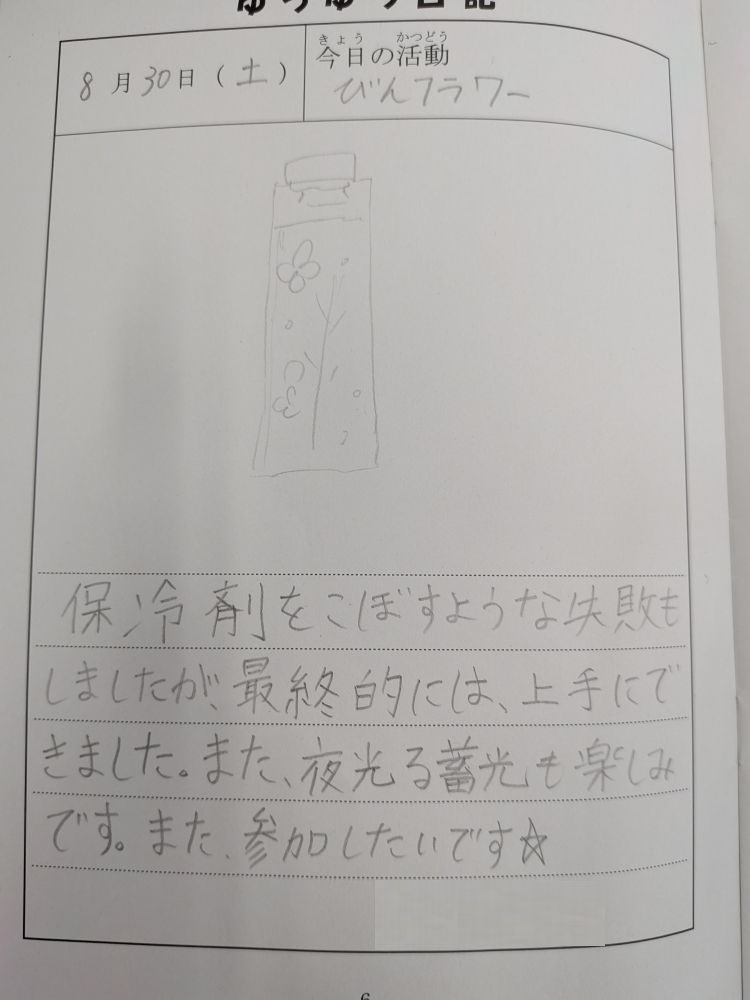 8月30日(土)
きょう かつどう
今日の活動
びんフラワー
保冷剤をこぼすような失敗も
しましたが、最終的には、上手にで
きました。また、夜光る蓄光も楽しみ
です。また、参加したいです☆
6